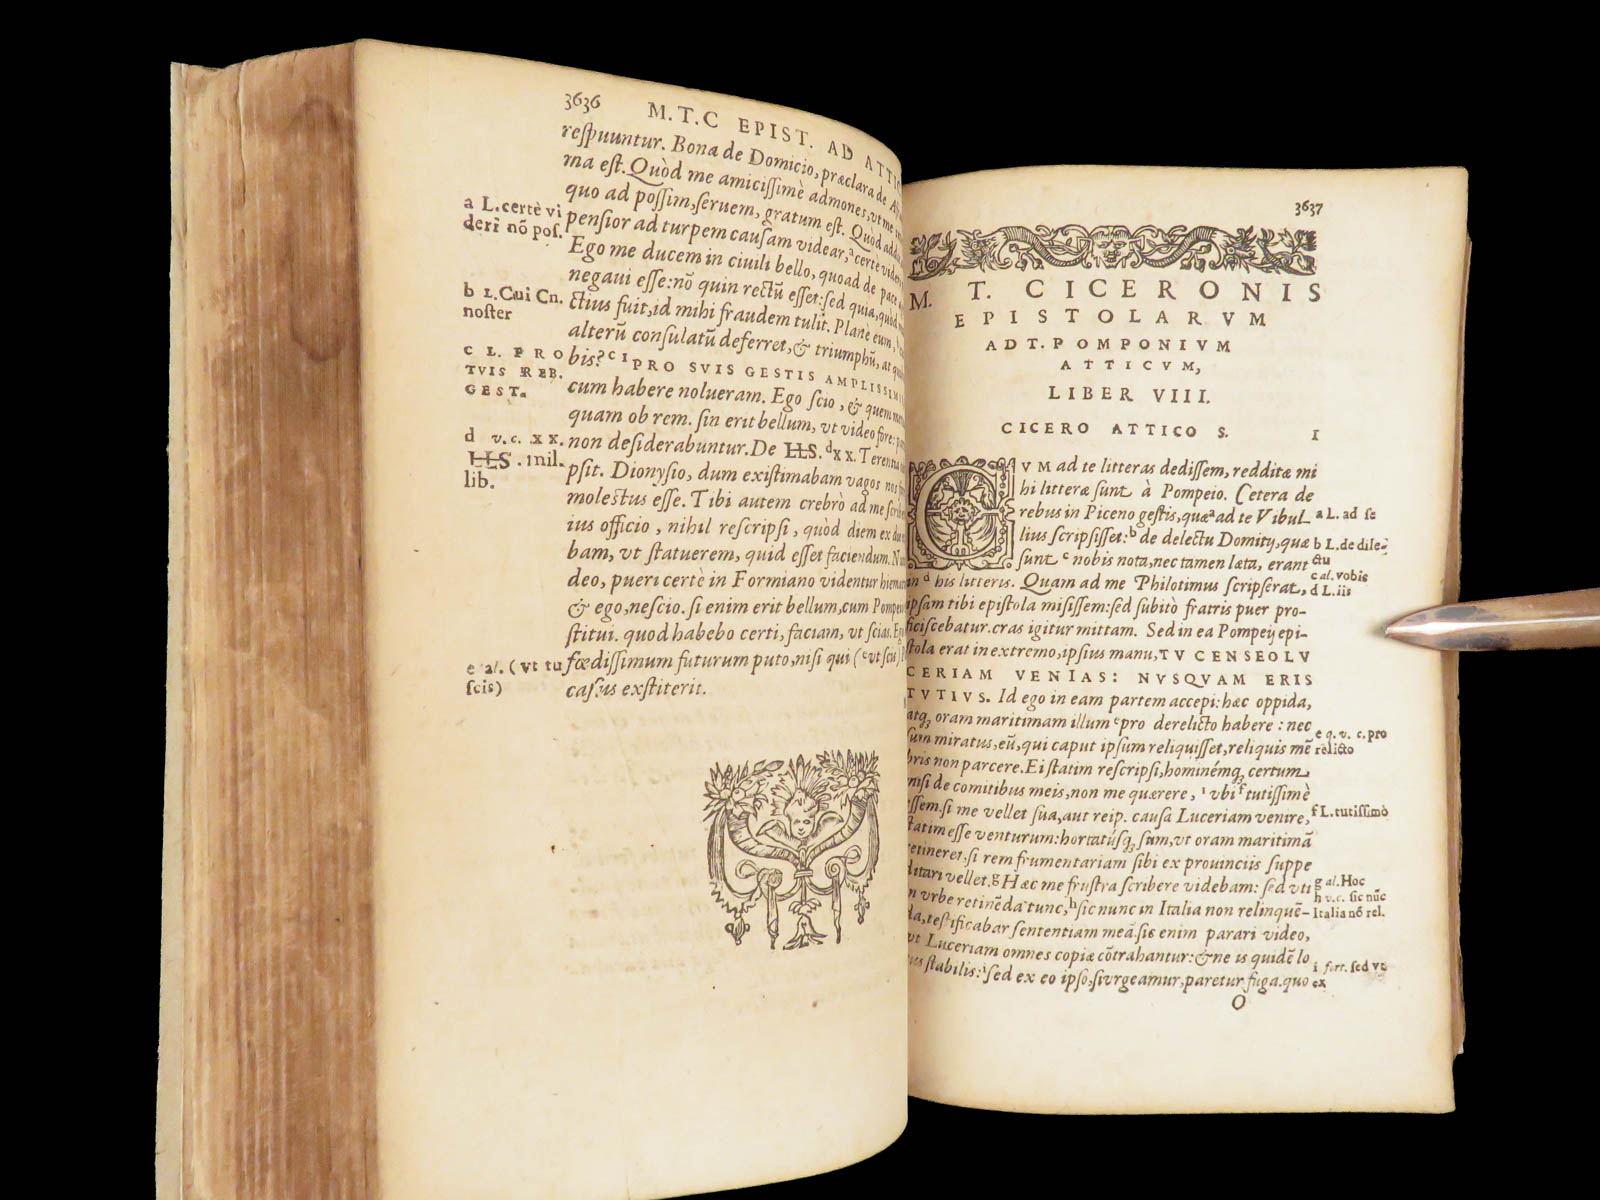 3636 M.T.C EPIST. AD ATTIC
respuuntur. Bona de Domicio, præclara de
ma est. Quòd me amicissimè admones, vt me
quo ad possim, seruem, gratum est. Quòd
pensior ad turpem causam videar, ᵃcertè
Ego me ducem in ciuili bello, quoad de pace
negaui esse: nō quin rectū esset: sed quia, quòd
ctius fuit, id mihi fraudem tulit. Planè eum,
alterū consulatū deferret, & triumphū, at
bis? ᶜ PRO SVIS GESTIS AMPLISSIMIS
cum habere nolueram. Ego scio, & quem
quam ob rem. sin erit bellum, vt video fore:
non desiderabuntur. De HS. ᵈxx. Terentia
psit. Dionysio, dum existimabam vagos nos
molestus esse. Tibi autem crebrò ad me
ius officio, nihil rescripsi, quòd diem ex
bam, vt statuerem, quid esset faciendum.
deo, pueri certè in Formiano videntur
& ego, nescio. si enim erit bellum, cum Pompeio
stitui. quod habebo certi, faciam, vt scias.
fœdissimum futurum puto, nisi qui (ᵉvt scu)
casus exstiterit.
a L. certè vi
deri nō pos.
b L. Cui Cn.
noster
c L. PRO
TVIS REB.
GEST.
d v.c. xx.
HS. mil.
lib.
e al. (vt tu
scis)
3637
M. T. CICERONIS
EPISTOLARVM
AD T. POMPONIVM
ATTICVM,
LIBER VIII.
CICERO ATTICO S. I
CVM ad te litteras dedissem, redditæ mi
hi litteræ sunt à Pompeio. Cetera de
rebus in Piceno gestis, quæ ᵃ ad te Vibul
lius scripsisset: ᵇ de delectu Domitij, quæ
sunt ᶜ nobis nota, nec tamen læta, erant
in ᵈ his litteris. Quam ad me Philotimus scripserat,
ipsam tibi epistola misissem: sed subitò fratris puer pro-
ficiscebatur. cras igitur mittam. Sed in ea Pompeij epi-
stola erat in extremo, ipsius manu, TV CENSEO LV
CERIAM VENIAS: NVSQVAM ERIS
TVTIVS. Id ego in eam partem accepi: hæc oppida,
atq; oram maritimam illum ᵉ pro derelicto habere: nec
sum miratus, eū, qui caput ipsum reliquisset, reliquis mē
bris non parcere. Ei statim rescripsi, hominémq; certum
misi de comitibus meis, non me quærere, vbi ᶠ tutissimè
essem. si me vellet sua, aut reip. causa Luceriam venire,
statim esse venturum: hortatúsq; sum, vt oram maritimā
retineret, si rem frumentariam sibi ex prouinciis suppe
ditari vellet. ᵍ Hæc me frustra scribere videbam: sed vti
in vrbe retinēda tunc, ʰ sic nunc in Italia non relinquē-
da, testificabar sententiam meā. sic enim parari video,
vt Luceriam omnes copiæ cōtrahantur: & ne is quidē lo
cus stabilis: ⁱ sed ex eo ipso, si vrgeamur, paretur fuga. quo
O
a L. ad se
b L. de dile-
ctu
c al. vobis
d L. iis
e q. v. c. pro
relicto
f L. tutissimò
g al. Hoc
h v.c. sic nūc
Italia nō rel.
i fort. sed vt
ex